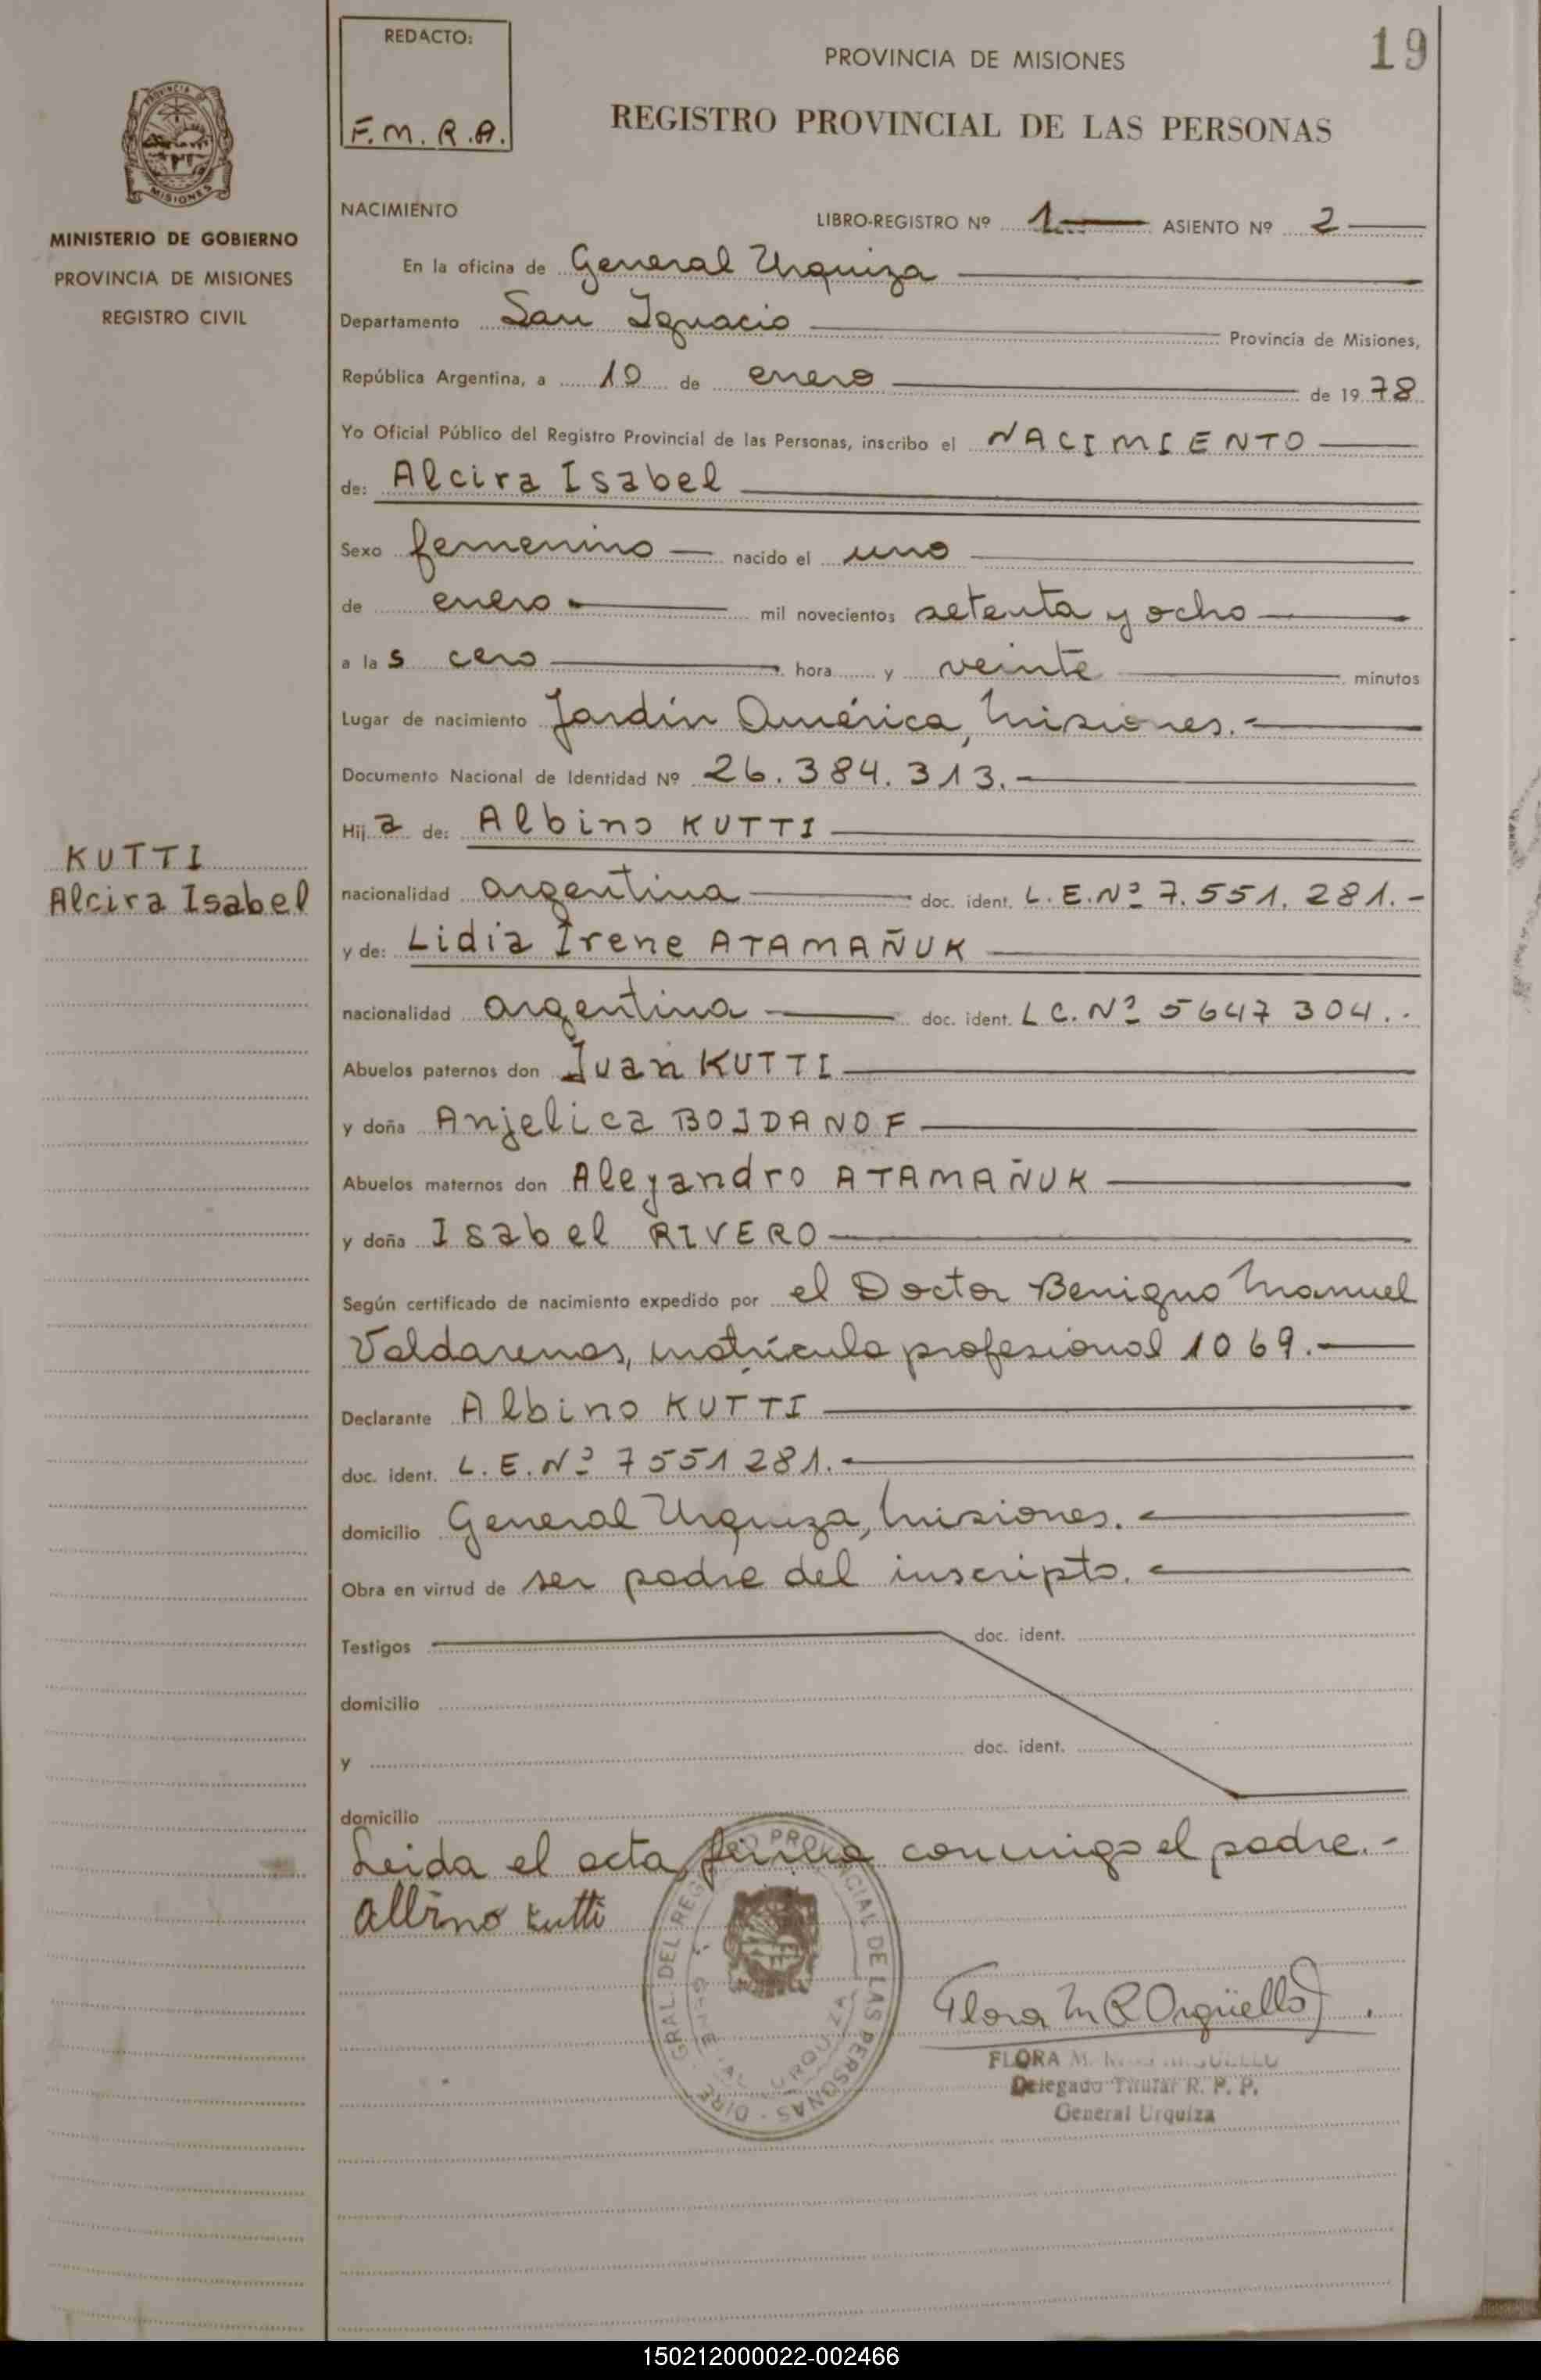 REDACTO:
F.M.R.A.
PROVINCIA DE MISIONES
19
REGISTRO PROVINCIAL DE LAS PERSONAS
PROVINCIA DE
MISIONES
MINISTERIO DE GOBIERNO
PROVINCIA DE MISIONES
REGISTRO CIVIL
KUTTI
Alcira Isabel
NACIMIENTO
LIBRO-REGISTRO Nº 1 ASIENTO Nº 2
En la oficina de General Urquiza
Departamento San Ignacio Provincia de Misiones,
República Argentina, a 10 de enero de 1978
Yo Oficial Público del Registro Provincial de las Personas, inscribo el NACIMIENTO
de: Alcira Isabel
Sexo femenino nacido el uno
de enero mil novecientos setenta y ocho
a las cero hora y veinte minutos
Lugar de nacimiento Jardín América, Misiones.-
Documento Nacional de Identidad Nº 26.384.313.-
Hija de: Albino KUTTI
nacionalidad argentina doc. ident. L.E.Nº 7.551.281.-
y de: Lidia Irene ATAMAÑUK
nacionalidad argentina doc. ident. L C.Nº 5647 304.-
Abuelos paternos don Juan KUTTI
y doña Anjelica BOJDANOF
Abuelos maternos don Alejandro ATAMAÑUK
y doña Isabel RIVERO
Según certificado de nacimiento expedido por el Doctor Benigno Manuel
Valdarenas, matrícula profesional 1069.-
Declarante Albino KUTTI
doc. ident. L.E.Nº 7551281.-
domicilio General Urquiza, Misiones.
Obra en virtud de ser padre del inscripto.
Testigos doc. ident.
domicilio
y doc. ident.
domicilio
Leida el acta, firma conmigo el padre.-
Albino Kutti
DIRE. GRAL. DEL REGISTRO PROVINCIAL DE LAS PERSONAS
GENERAL URQUIZA
Flora M R Argüello
FLORA M.
Delegado Titular R. P. P.
General Urquiza
150212000022-002466